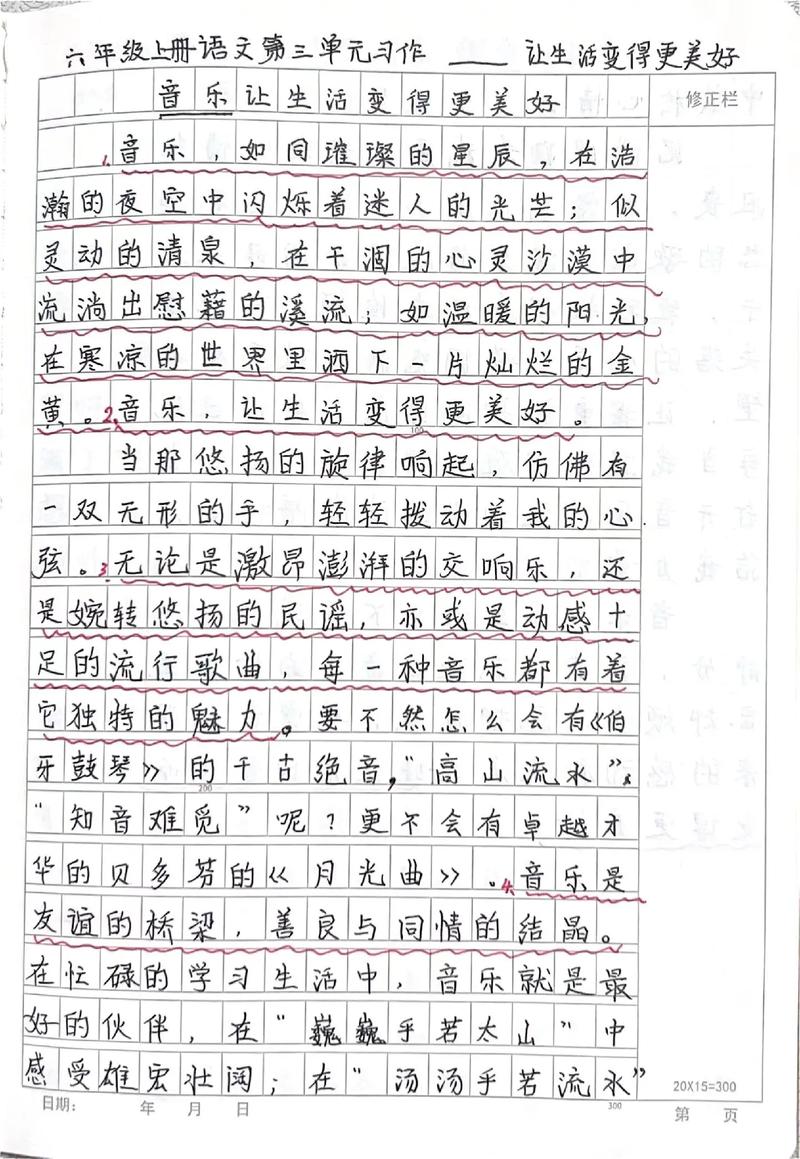 六年级上册语文第三单元习作 ____ 让生活变得更美好
音乐让生活变得更美好
修正栏
1.音乐，如同璀璨的星辰，在浩
瀚的夜空中闪烁着迷人的光芒；似
灵动的清泉，在干涸的心灵沙漠中
流淌出慰藉的溪流；如温暖的阳光，
在寒凉的世界里洒下片灿烂的金
黄。2.音乐，让生活变得更美好。
100
当那悠扬的旋律响起，仿佛有
一双无形的手，轻轻拨动着我的心
弦。3.无论是激昂澎湃的交响乐，还
是婉转悠扬的民谣，亦或是动感十
足的流行歌曲，每一种音乐都有着
它独特的魅力。要不然怎么会有《伯
牙鼓琴》的千古绝音，“高山流水”、
200
“知音难觅”呢？更不会有卓越才
华的贝多芬的《月光曲》。4.音乐是
友谊的桥梁，善良与同情的结晶。
在忙碌的学习生活中，音乐就是最
好的伙伴，在“巍巍乎若太山”中
感受雄宏壮阔；在“汤汤乎若流水”
20X15=300
日期： 年 月 日
300
第 页